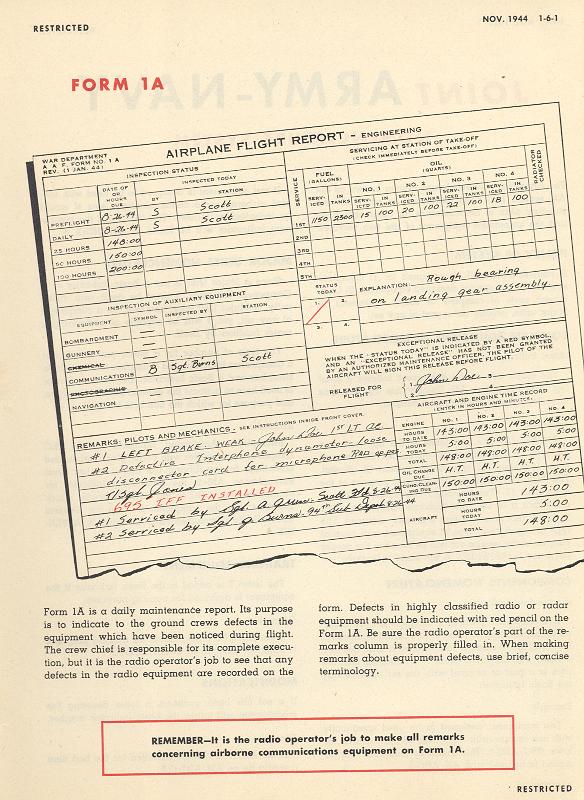 RESTRICTED
NOV. 1944 1-6-1
FORM 1A
WAR DEPARTMENT
A. A. F. FORM NO. 1 A
REV. (1 JAN. 44)
AIRPLANE FLIGHT REPORT - ENGINEERING
INSPECTION STATUS
DATE OF OR HOURS DUE
INSPECTED TODAY
BY STATION
PREFLIGHT 8-26-44 S Scott
DAILY 8-26-44 S Scott
25 HOURS 148:00
50 HOURS 150:00
100 HOURS 200:00
SERVICING AT STATION OF TAKE-OFF
(CHECK IMMEDIATELY BEFORE TAKE-OFF)
SERVICE
FUEL (GALLONS)
OIL (QUARTS)
RADIATOR CHECKED
NO. 1 NO. 2 NO. 3 NO. 4
SERV-ICED IN TANKS SERV-ICED IN TANKS SERV-ICED IN TANKS SERV-ICED IN TANKS SERV-ICED IN TANKS
1ST 1150 2300 15 100 20 100 22 100 18 100
2ND
3RD
4TH
5TH
STATUS TODAY
1. 2.
3. 4.
EXPLANATION: Rough bearing
on landing gear assembly
INSPECTION OF AUXILIARY EQUIPMENT
EQUIPMENT SYMBOL INSPECTED BY STATION
BOMBARDMENT —
GUNNERY —
CHEMICAL
COMMUNICATIONS B Sgt. Burns Scott
PHOTOGRAPHIC
NAVIGATION
EXCEPTIONAL RELEASE
WHEN THE "STATUS TODAY" IS INDICATED BY A RED SYMBOL,
AND AN "EXCEPTIONAL RELEASE" HAS NOT BEEN GRANTED
BY AN AUTHORIZED MAINTENANCE OFFICER, THE PILOT OF THE
AIRCRAFT WILL SIGN THIS RELEASE BEFORE FLIGHT.
RELEASED FOR FLIGHT 1. John Doe 3.
2. 4.
REMARKS: PILOTS AND MECHANICS - SEE INSTRUCTIONS INSIDE FRONT COVER.
#1 LEFT BRAKE - WEAK - John Doe 1ST LT AC
#2 Defective Interphone dynamotor - loose
disconnector cord for microphone
T/Sgt Jones
695 IFF INSTALLED
#1 Serviced by Sgt. A Scott Fld 8-26-44
#2 Serviced by Sgt. J Burns - 94th Sub Depot 8-26-44
AIRCRAFT AND ENGINE TIME RECORD
(ENTER IN HOURS AND MINUTES.)
ENGINE NO. 1 NO. 2 NO. 3 NO. 4
HOURS TO DATE 143:00 143:00 143:00 143:00
HOURS TODAY 5:00 5:00 5:00 5:00
TOTAL 148:00 148:00 148:00 148:00
OIL CHANGE DUE H.T. H.T. H.T. H.T.
CUNO.CLEAN-ING DUE 150:00 150:00 150:00 150:00
AIRCRAFT
HOURS TO DATE 143:00
HOURS TODAY 5:00
TOTAL 148:00
Form 1A is a daily maintenance report. Its purpose
is to indicate to the ground crews defects in the
equipment which have been noticed during flight.
The crew chief is responsible for its complete execu-
tion, but it is the radio operator's job to see that any
defects in the radio equipment are recorded on the
form. Defects in highly classified radio or radar
equipment should be indicated with red pencil on the
Form 1A. Be sure the radio operator's part of the re-
marks column is properly filled in. When making
remarks about equipment defects, use brief, concise
terminology.
REMEMBER—It is the radio operator's job to make all remarks
concerning airborne communications equipment on Form 1A.
RESTRICTED